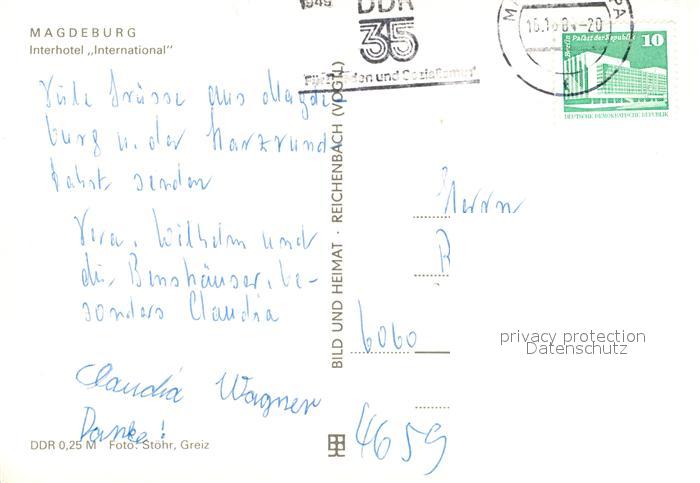 MAGDEBURG
Interhotel „International"
1949
DDR
35
und Sozialismus
16.1
-20
Berlin Palast der Republik
10
DEUTSCHE DEMOKRATISCHE REPUBLIK
Viele Grüsse aus Magde-
burg u. der Harzrund-
fahrt senden
Vera, Wilhelm und
die Benshäuser, be-
sonders Claudia
Claudia Wagner
Danke!
DDR 0,25 M Foto: Stöhr, Greiz
BILD UND HEIMAT · REICHENBACH (VOGTL)
Herrn
6060
privacy protection
Datenschutz
4659